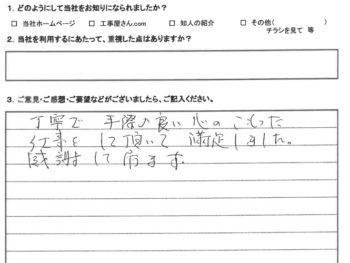 1. どのようにして当社をお知りになられましたか？
□ 当社ホームページ □ 工事屋さん.com □ 知人の紹介 □ その他( )
チラシを見て 等
2. 当社を利用するにあたって、重視した点はありますか？
3. ご意見・ご感想・ご要望などがございましたら、ご記入ください。
丁寧で 手際の良い 心の こもった
仕事を して頂いて 満足しました。
感謝して居ます。